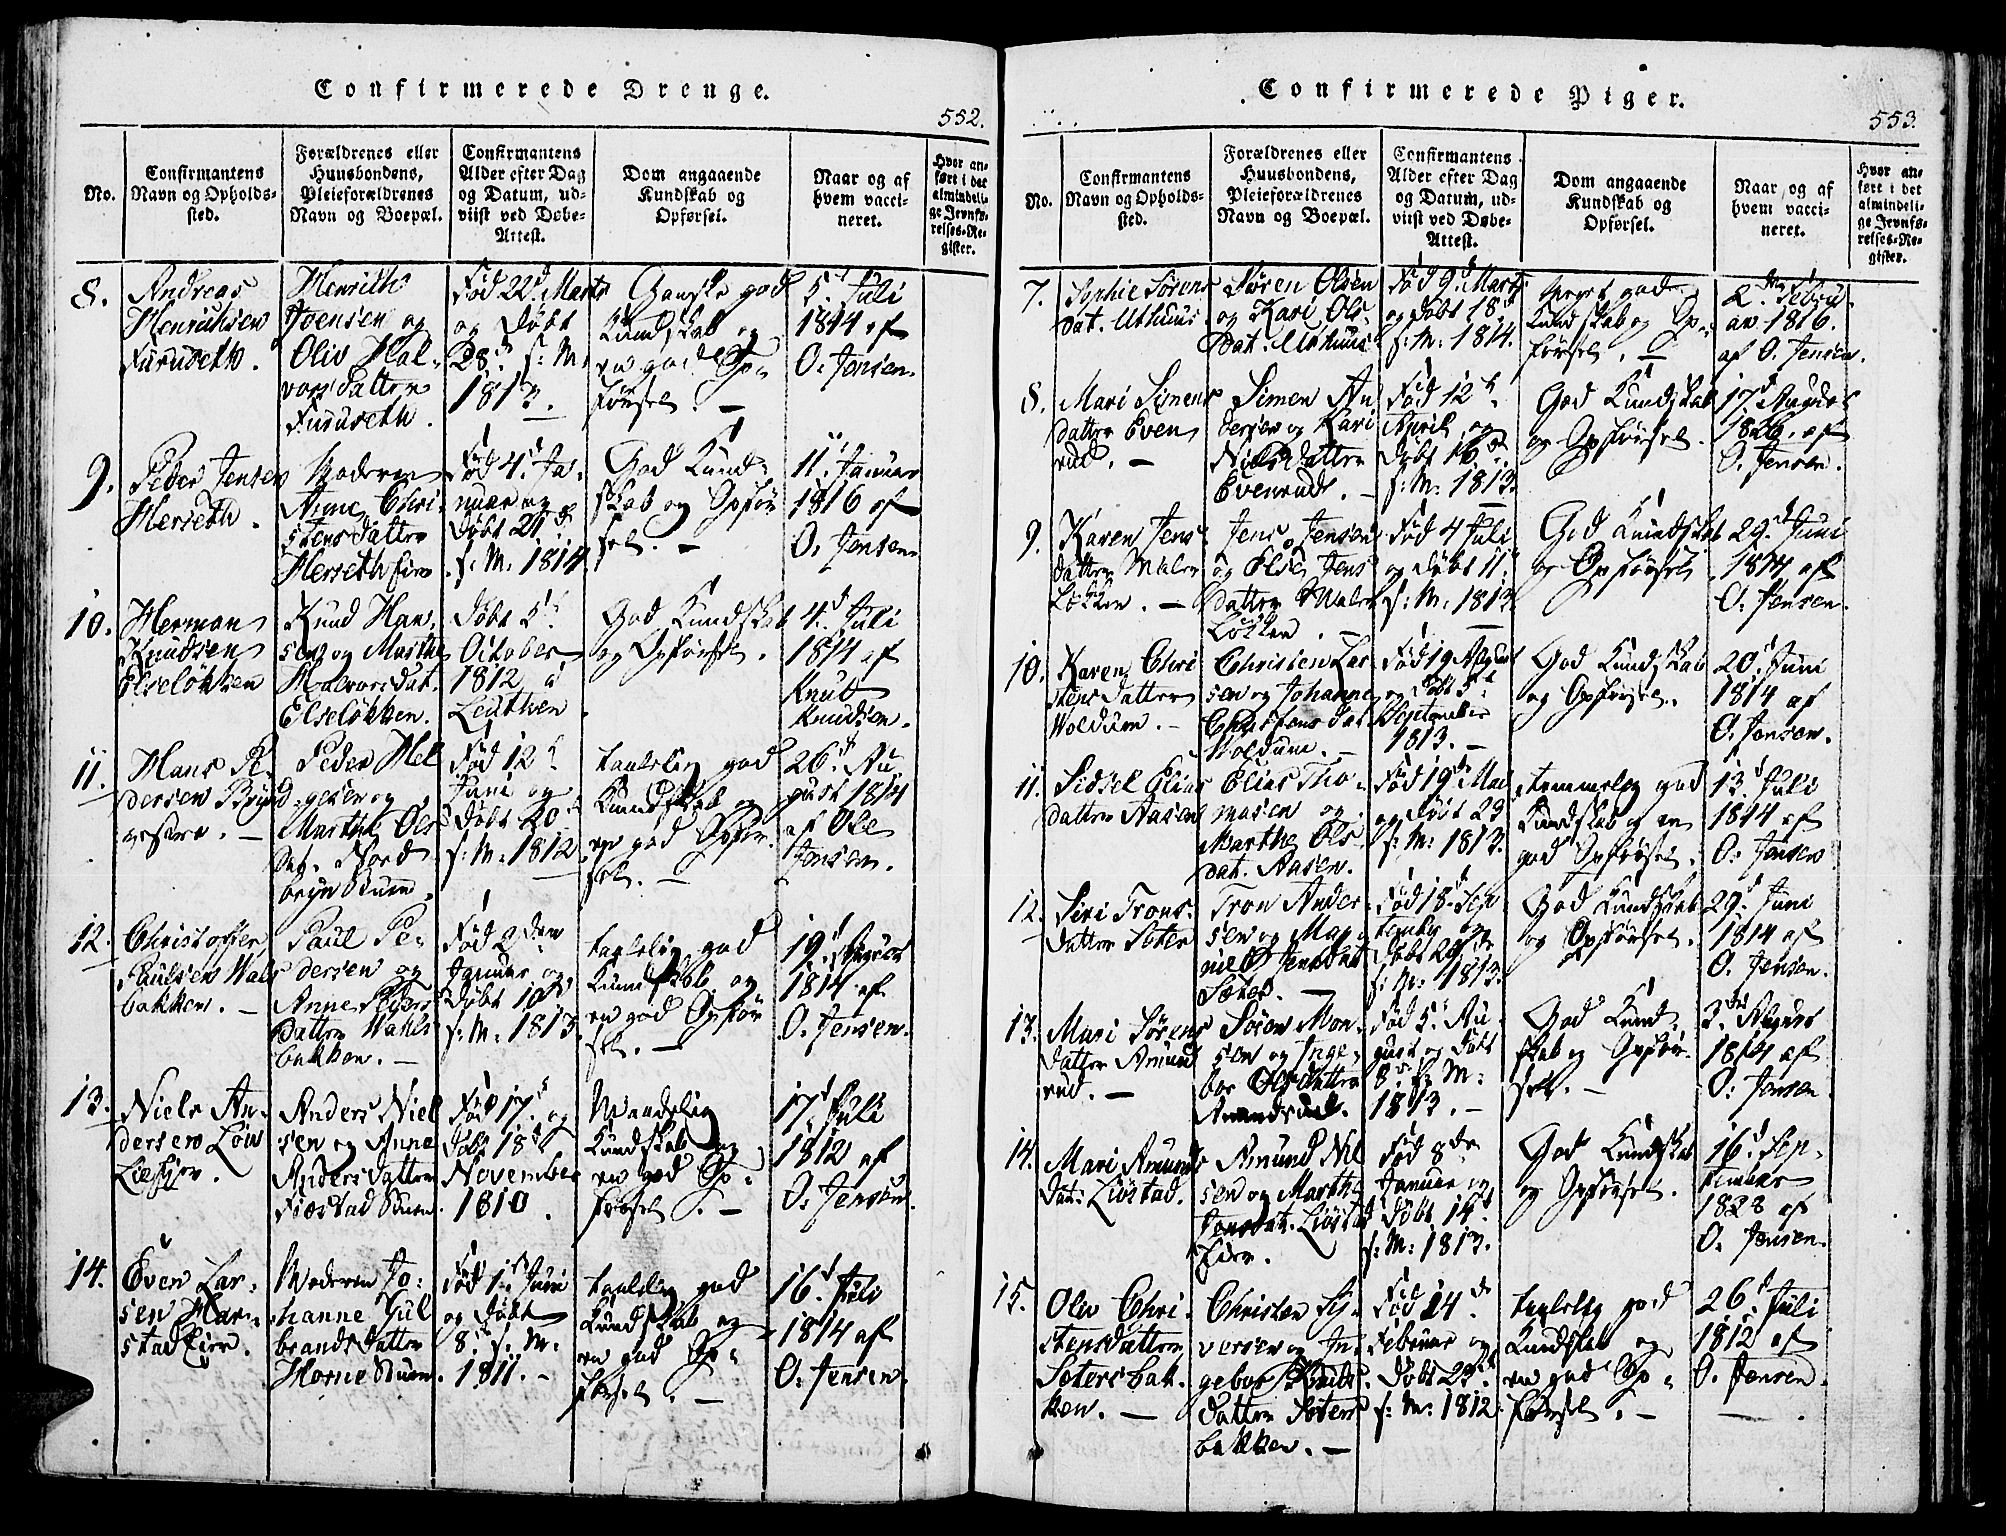 Confirmerede Drenge.
552.
No.
Confirmantens
Navn og Opholds-
sted.
Forældrenes eller
Huusbondens,
Pleieforældrenes
Navn og Boepæl.
Confirmantens
Alder efter Dag
og Datum, ud-
viist ved Døbe-
Attest.
Dom angaaende
Kundskab og
Opførsel.
Naar og af
hvem vacci-
neret.
Hvor an-
ført i det
almindeli-
ge Jevnfø-
relses-Re-
gister.
8.
Andreas
Henrichsen
Furuseth.
Henrich
Joensen og
Oliv Hal-
vors Datter
Furuseth.
Fød 22d. Marts
og Døbt
28d. s: M:
1813.
Ganske god
Kundskab og
en god Op-
førsel. —
5t. Juli
1814 af
O: Jensen.
9.
Peder Jensen
Herseth.
Moderen
Anne Chri-
stens Datter
Herseth Eier
Fød 4d. Ja-
nuar og
Døbt 21de
s: M: 1814
God Kund-
skab og Opfør
sel. —
11t. Januar
1816 af
O. Jensen
10.
Herman
Knudsen
Elseløkken
Knud Han-
sen og Marthe
Halvorsdat.
Elseløkken.
Døbt 5t.
October
1812 i
Leuthen
God Kundskab
og Opførsel.
4d. Juli
1814 af
Knut
Knudsen.
11.
Hans Pe-
dersen Brynd
vestre. —
Peder Hel
gesen og
Marthe Ols
Dat. Nord
bryn Stuen.
Fød 12t.
Juni og
Døbt 20d
s: M: 1812
taalelig god
Kundskab og
en god Opfør
sel. —
26d. Au-
gust 1814
af Ole
Jensen.
12.
Christoffer
Paulsen Wals
bakken. —
Paul Pe-
dersen og
Anne Peders
Datter Wahls
bakken. —
Fød 2den
Januar og
Døbt 10d
s: M: 1813
taalelig god
Kundskab og
en god Opfør
sel. —
19d. August
1814 af
O. Jensen.
13.
Niels An-
dersen Løv
Lieeier.
Anders Niel
sen og Anne
Andersdatter
Fiæstad Stuen.
Fød 17d. og
Døbt 18d.
November
1810.
Maadelig
Kundskab og
en god Op-
førsel. —
17d. Juli
1812 af
O. Jensen.
14.
Even Lar-
sen Har-
stad Eier.
Moderen Jo-
hanne Gul
brands Datter
Horne Stuen.
Fød 1ste Juni
og Døbt
8de s: M:
1811. -
taalelig god
Kundskab og
en god Op-
førsel. —
16d. Juli
1814 af
O. Jensen.
Confirmerede Piger.
553.
No.
Confirmantens
Navn og Opholds-
sted.
Forældrenes eller
Huusbondens,
Pleieforældrenes
Navn og Boepæl.
Confirmantens
Alder efter Dag
og Datum, ud-
viist ved Døbe-
Attest.
Dom angaaende
Kundskab og
Opførsel.
Naar og af
hvem vacci-
neret.
Hvor an-
ført i det
almindeli-
ge Jevnfø-
relses-Re-
gister.
7.
Sophie Sørens
dat. Uthuus
Søren Olsen
og Kari Ols
Dat. Uthuus
Fød 9d. Marts
og døbt 18d
s: M: 1814.
meget god
Kundskab og Op-
førsel. —
2den Febru-
ar 1816.
af O. Jensen.
8.
Mari Simens
datter Even
rud. —
Simen An
dersen og Kari
Nielsdatter
Evenrud. —
Fød 12t.
April og
døbt 16de
s: M: 1813.
God Kundskab
og Opførsel.
17d August
1826. af
O. Jensen.
9.
Karen Jens
datter Maler
Løkken. —
Jens Jensen
og Else Jens
datter Maler
Løkken. —
Fød 4 Juli
og Døbt 11t.
s: M: 1813.
God Kundskab
og Opførsel
29d. Juni
1814 af
O. Jensen.
10.
Karen Chri
stens datter
Woldum. —
Christen Lar
sen og Johanne
Christens dat.
Woldum. —
Fød 19 August
og Døbt 5t
September
1813. —
God Kundskab
og Opførsel.
20d. Juni
1814 af
O. Jensen.
11.
Sidsel Elias
datter Aasen
Elias Tho-
masen og
Marthe Ols
dat. Aasen.
Fød 19de Mai
og Døbt 23
s: M: 1813.
temmelig god
Kundskab og en
god Opførsel.
13d. Juli
1814 af
O: Jensen
12.
Siri Trons-
datter Sæter
Tron Ander
sen og Mag
nil Jensdat
Sæter. —
Fød 18d. Sep
temb. og
Døbt 26de
s: M: 1813.
God Kundskab
og Opførsel.
29d. Juni
1814 af
O. Jensen.
13.
Mari Sørens
datter Amund
rud. —
Søren Mon-
sen og Inge-
bor Olsdatter
Amundsrud.
Fød 5t. Au-
gust og Døbt
8de s: M:
1813. —
God Kund-
skab og Opfør-
sel. —
3die August
1814 af
O: Jensen
14.
Mari Amunds
dat: Liøstad.
Amund Nil
sen og Marthe
Jensdat. Liøstad
Eier.
Fød 8de
Januar og
Døbt 14d
s: M: 1813.
God Kundskab
og Opførsel.
16d. Sep-
tember
1828 af
O. Jensen.
15.
Oliv Chri-
stensdatter
Sætersbak-
ken. —
Christen Sy-
versen og In-
gebor
datter Sæters
bakken. —
Fød 14de
Februar og
Døbt 23de
s: M: 1812
taalelig god
Kundskab og
en god Op-
førsel. —
26d. Juli
1812 af
O. Jensen.